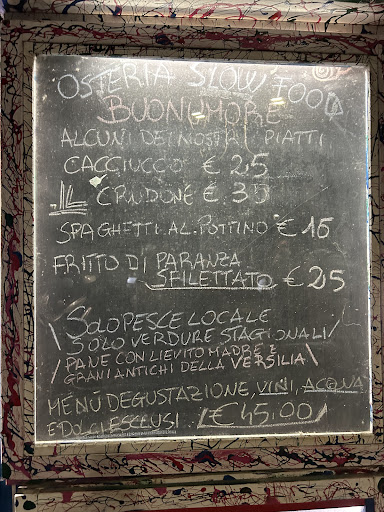 OSTERIA SLOW FOOD
BUONUMORE
ALCUNI DEI NOSTRI PIATTI
CACCIUCCO € 25
IL CRUDONE € 30
SPAGHETTI AL POTTINO € 16
FRITTO DI PARANZA
SFILETTATO € 25
SOLO PESCE LOCALE
SOLO VERDURE STAGIONALI
PANE CON LIEVITO MADRE E
GRANI ANTICHI DELLA VERSILIA
MENÚ DEGUSTAZIONE, VINI, ACQUA
E DOLCI ESCLUSI. € 45.00